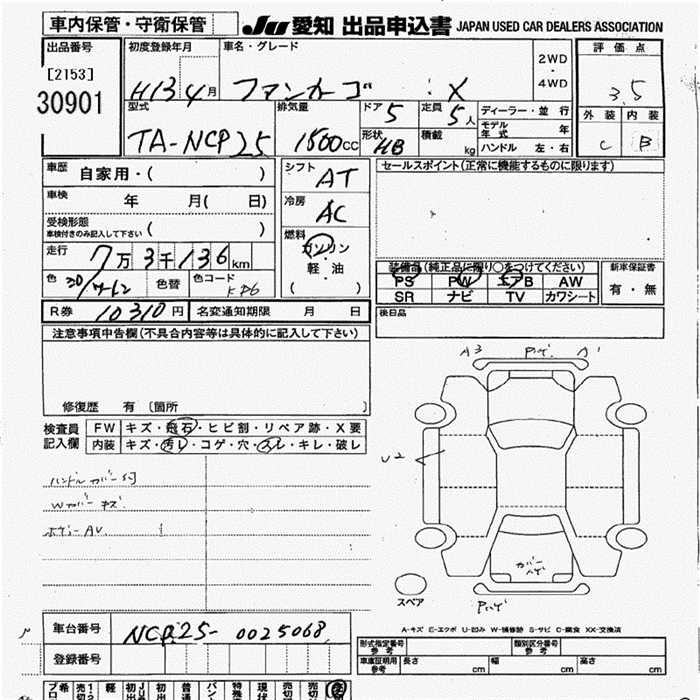 車内保管・守衛保管
JU 愛知 出品申込書 JAPAN USED CAR DEALERS ASSOCIATION
出品番号
[2153]
30901
初度登録年月
H13 4月
車名・グレード
ファンカーゴ X
2WD
・
4WD
評価点
3.5
外装 内装
C B
型式
TA-NCP25
排気量
1500CC
ドア 5
形状 HB
定員 5人
積載 kg
ディーラー・並行
モデル年式 年
ハンドル 左・右
車歴 自家用・( )
車検 年 月( 日)
受検形態
車検付きのみ記入して下さい ( )
走行 7万3千136km
色 色替 色コード
R券 10310円 名変通知期限 月 日
シフト
AT
冷房
AC
燃料
ガソリン
・
軽・油
( )
セールスポイント(正常に機能するものに限ります)
装備品(純正品に限り○をつけてください)
PS PW エアB AW
SR ナビ TV カワシート
新車保証書
有・無
後日品
注意事項申告欄(不具合内容等は具体的に記入して下さい)
修復歴 有 〔箇所 〕
検査員
記入欄
FW キズ・飛石・ヒビ割・リペア跡・X要
内装 キズ・汚レ・コゲ・穴・スレ・キレ・破レ
Wカバー キズ
A3
A1
U2
スペア
A-キズ E-エクボ U-凹み W-補修跡 S-サビ C-腐食 XX-交換済
車台番号 NCP25-0025068
登録番号
形式指定番号
参考
類別区分番号
参考
車庫証明用
参考
長さ cm 幅 cm 高さ cm